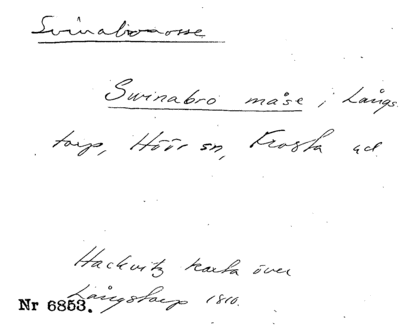 Svinabromosse
Swinabro måse i Långs
torp, Höör sn, Frosta hd
Hackvitz karta över
Långstorp 1810.
Nr 6853.